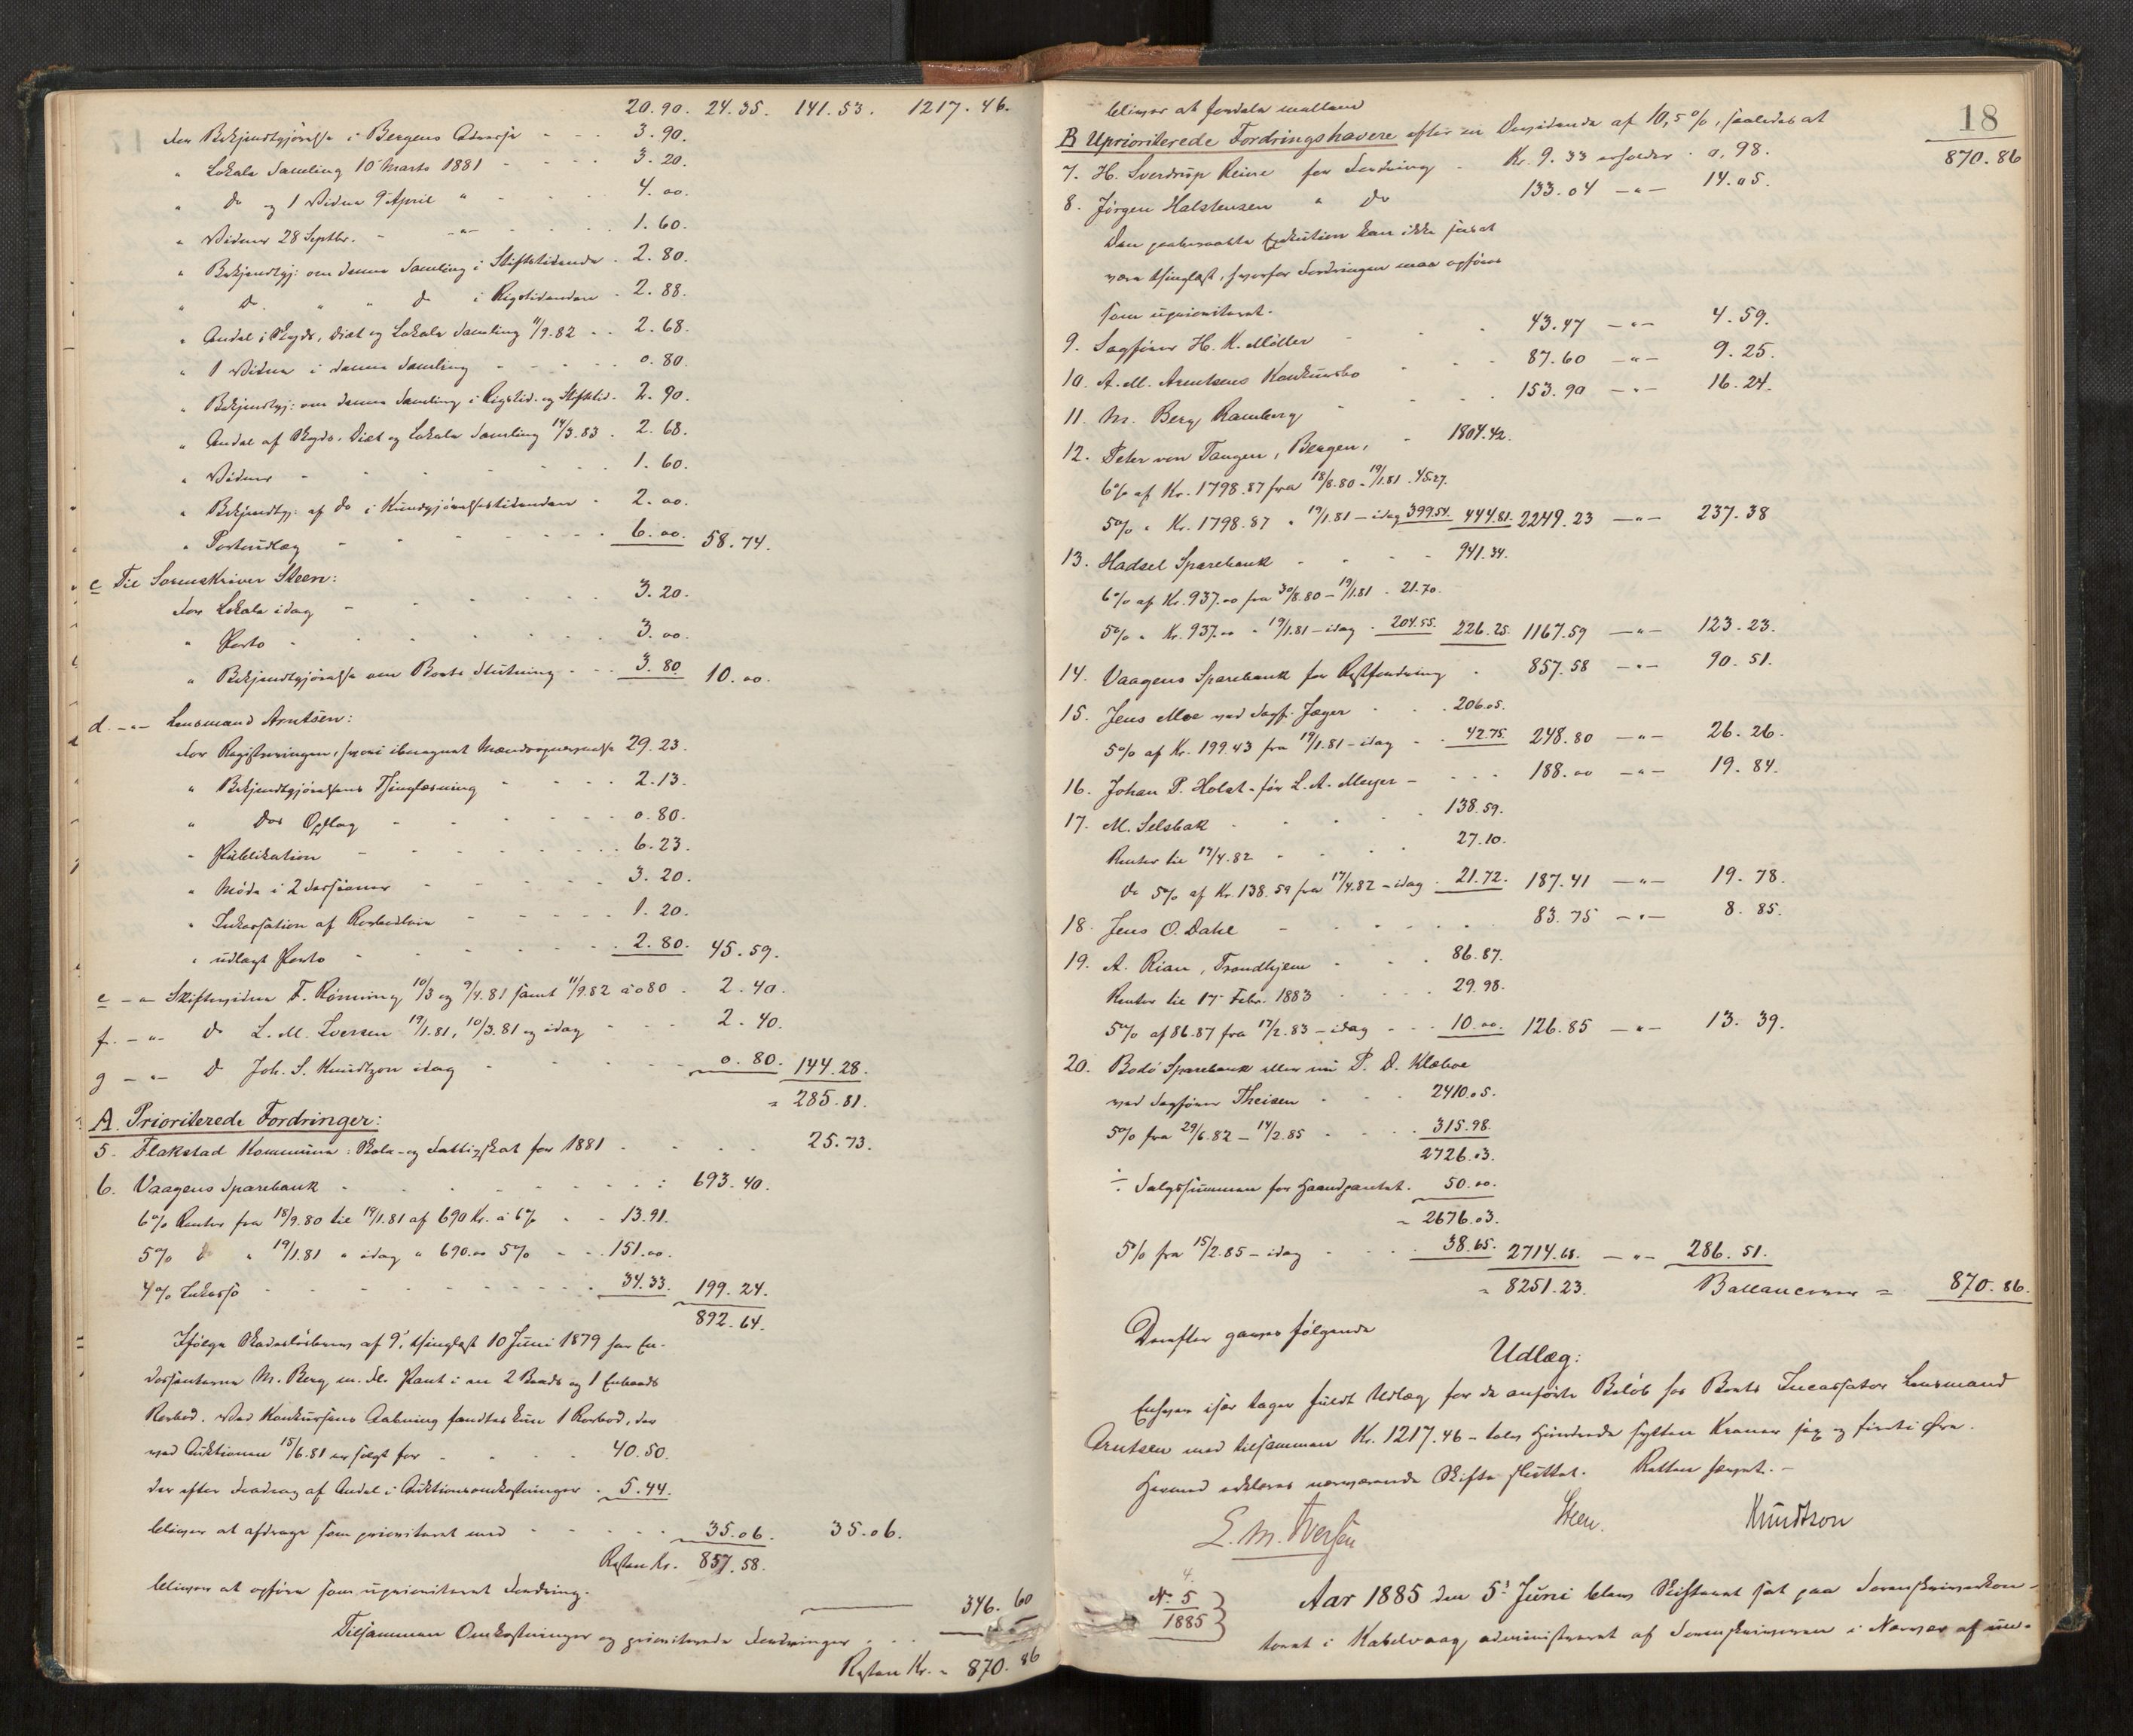 20.90. 24.35. 141.53. 1217.46.
for Bekjendtgjørelse i Bergens Adresse - - - 3.90.
" Lokale Samling 10 Marts 1881 - - - - 3.20.
" Do og 1 Vidne 9 April " - - - 4.00.
" Vidner 28 Septbr. - -"- - - - 1.60.
" Bekjendtgj: om denne Samling i Stiftstidende . 2.80.
" Do " " Do i Rigstidenden . 2.88.
" Andel i Skyds, Diæt og Lokale Samling 11/9.82 . . 2.68.
" 1 Vidne i denne Samling - - - - 0.80.
" Bekjendtgj: om denne Samling i Rigstid. og Stiftstid. 2.90.
" Andel af Skyds, Diæt og Lokale Samling 14/3.83 . 2.68.
" Vidner - - - - - - 1.60.
" Bekjendtgj: af Do i Kundgjørelsestidenden - 2.00.
" Portoudlæg - - - - - - 6.00. 58.74.
c Til Sorenskriver Steen:
for Lokale idag - - - - - 3.20.
" Porto - - - - - - 3.00.
" Bekjendtgjørelse om Boets Slutning - - - 3.80. 10.00.
d. -"- Lensmand Arntsen:
for Registreringen, hvori iberegnet Mændsopnævnelse 29.23.
" Bekjendtgjørelsens Thinglæsning - - - - 2.13.
" Dos Opslag - - - - - 0.80.
" Publikation - - - - - - 6.23.
" Møde i 2 Sessioner - - - - - 3.20.
" Inkassation af Rorbodleie - - - - 1.20.
" udlagt Porto - - - - - - 2.80. 45.59.
e -"- Skiftevidne F. Rønning 10/3 og 9/4.81 samt 11/9.82 à 0.80 . 2.40.
f. -"- Do L. M. Iversen 19/1.81, 10/3.81 og idag - - - 2.40.
g -"- Do Joh. S. Knudtzon idag - - - - 0.80. 144.28.
= 285.81.
A. Prioriterede Fordringer:
5. Flakstad Kommune: Skole- og Fattigskat for 1881 - - - 25.73.
6. Vaagens Sparebank - - - - - - - : 693.40.
6% Renter fra 18/9.80 til 19/1.81 af 690 Kr. à 6% - - 13.91.
5% Do " 19/1.81 " idag " 690.00 5% - - . 151.00.
4% Inkasso - - - - - - - - 34.33. 199.24.
892.64.
Ifølge Skadesløsbrev af 9', thinglæst 10 Juni 1879 har En-
dossenterne M. Berg m. Fl. Pant i en 2 Bords og 1 Enbords
Rorbod. Ved Konkursens Aabning fandtes kun 1 Rorbod, der
ved Auktionen 15/6.81 er solgt for - - - - 40.50.
der efter Fradrag af Andel i Auktionsomkostninger . 5.44.
bliver at afdrage som prioriteret med - - - - 35.06. 35.06.
Resten Kr. 857.58.
bliver at opføre som uprioriteret Fordring.
Tilsammen Omkostninger og prioriterede Fordringer . . . 346.60
Resten Kr. = 870.86
18
bliver at fordele mellem
B Uprioriterede Fordringshavere efter en Dividende af 10,5%, saaledes at 870.86
7. H. Sverdrup Reine for Fordring - Kr. 9.33 erholder . 0,98.
8. Jørgen Halstensen " Do 133.04 -"- 14.05.
Den paaberaabte Exekution kan ikke sees at
være thinglæst, hvorfor Fordringen maa opføres
som uprioriteret.
9. Sagfører H. K. Møller - - 43.47 -"- 4.59.
10. A. M. Arentsens Konkursbo - - - 87.60 -"- 9.25.
11. M. Berg Ramberg - - - 153.90 -"- 16.24.
12. Peter von Tangen, Bergen, - 1804.42.
6% af Kr. 1798.87 fra 18/8.80 - 19/1.81 . 45.27.
5% " Kr. 1798.87 " 19/1.81 - idag 399.54. 444.81. 2249.23 -"- 237.38
13. Hadsel Sparebank - - - 941.34.
6% af Kr. 937.00 fra 30/8.80 - 19/1.81 . 21.70.
5% " Kr. 937.00 " 19/1.81 - idag . 204.55. 226.25. 1167.59 -"- 123.23.
14. Vaagens Sparebank for Restfordring . 857.58 -"- 90.51.
15. Jens Moe ved Sagf. Jæger - . 206.05.
5% af Kr. 199.43 fra 19/1.81 - idag - . 42.75. 248.80 -"- 26.26.
16. Johan P. Holst - før L. A. Meyer - - - - 188.00 -"- 19.84.
17. M. Selsbak - - - - . 138.59.
Renter til 17/4.82 - - - . 27.10.
Do 5% af Kr. 138.59 fra 17/4.82 - idag . 21.72. 187.41 -"- 19.78.
18. Jens O. Dahl - - - - - - 83.75 -"- 8.85.
19. A. Rian, Trondhjem - - . 86.87.
Renter til 17 Febr. 1883 - - - . 29.98.
5% af 86.87 fra 17/2.83 - idag - - . 10.00. 126.85 -"- 13.39.
20. Bodø Sparebank eller nu P. D. Klæboe
ved Sagfører Theisen - - - 2410.05.
5% fra 29/6.82 - 14/2.85 - - - . 315.98.
2726.03.
÷ Salgssummen for Haandpantet . 50.00.
= 2676.03.
5% fra 15/2.85 - idag - - - . 38.65. 2714.68. -"- 286.51.
= 8251.23. Ballancerer = 870.86.
Derefter gjøres følgende
Udlæg:
Enhver især tager fuldt Udlæg for de anførte Beløb hos Boets Incassator Lensmand
Arntsen med tilsammen Kr. 1217.46 - tolv Hundrede sytten Kroner sex og firti Øre.
Hermed erklæres nærværende Skifte sluttet. Retten hævet. -
L. M. Iversen Steen. Knudtzon
4.
No. 5
1885
Aar 1885 den 5' Juni blev Skifteret sat paa Sorenskriverkon-
toret i Kabelvaag, administreret af Sorenskriveren i Nærvær af un-